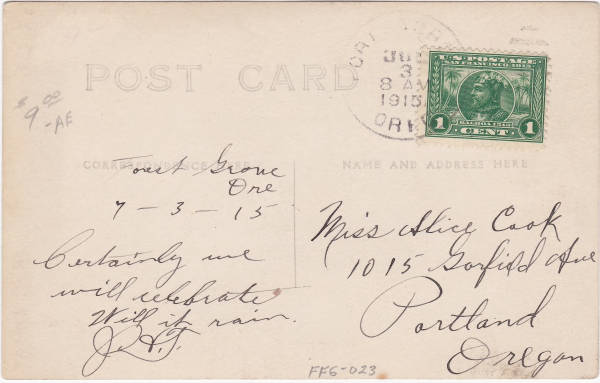 POST CARD
JUL
3
8 AM
1915
ORE
U.S. POSTAGE
SAN FRANCISCO 1915
1 CENT 1
$9.00
-AE
CORRESPONDENCE HERE
NAME AND ADDRESS HERE
Forest Grove
Ore
7-3-15
Certainly we
will celebrate
Will it rain.
Miss Alice Cook
1015 Garfield Ave
Portland
Oregon
FF6-023